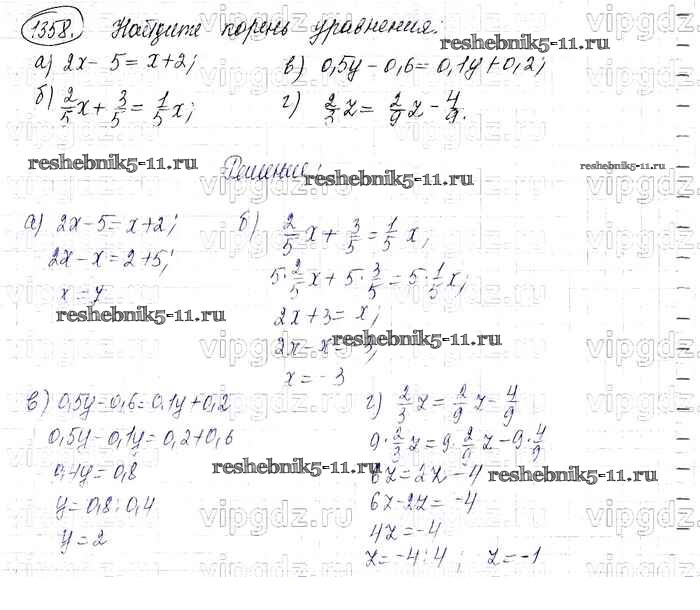 1358. Найдите корень уравнения:
а) 2x - 5 = x + 2;
в) 0,5y - 0,6 = 0,1y + 0,2;
б) 2/5 x + 3/5 = 1/5 x;
г) 2/3 z = 2/9 z - 4/9.
reshebnik5-11.ru
Решение:
а) 2x - 5 = x + 2;
2x - x = 2 + 5;
x = 7
б) 2/5 x + 3/5 = 1/5 x;
5 · 2/5 x + 5 · 3/5 = 5 · 1/5 x;
2x + 3 = x;
2x - x = -3;
x = -3
в) 0,5y - 0,6 = 0,1y + 0,2
0,5y - 0,1y = 0,2 + 0,6
0,4y = 0,8
y = 0,8 : 0,4
y = 2
г) 2/3 z = 2/9 z - 4/9
9 · 2/3 z = 9 · 2/9 z - 9 · 4/9
6z = 2z - 4
6z - 2z = -4
4z = -4
z = -4 : 4; z = -1
reshebnik5-11.ru
reshebnik5-11.ru
reshebnik5-11.ru
reshebnik5-11.ru
reshebnik5-11.ru
reshebnik5-11.ru
reshebnik5-11.ru
vipgdz.ru